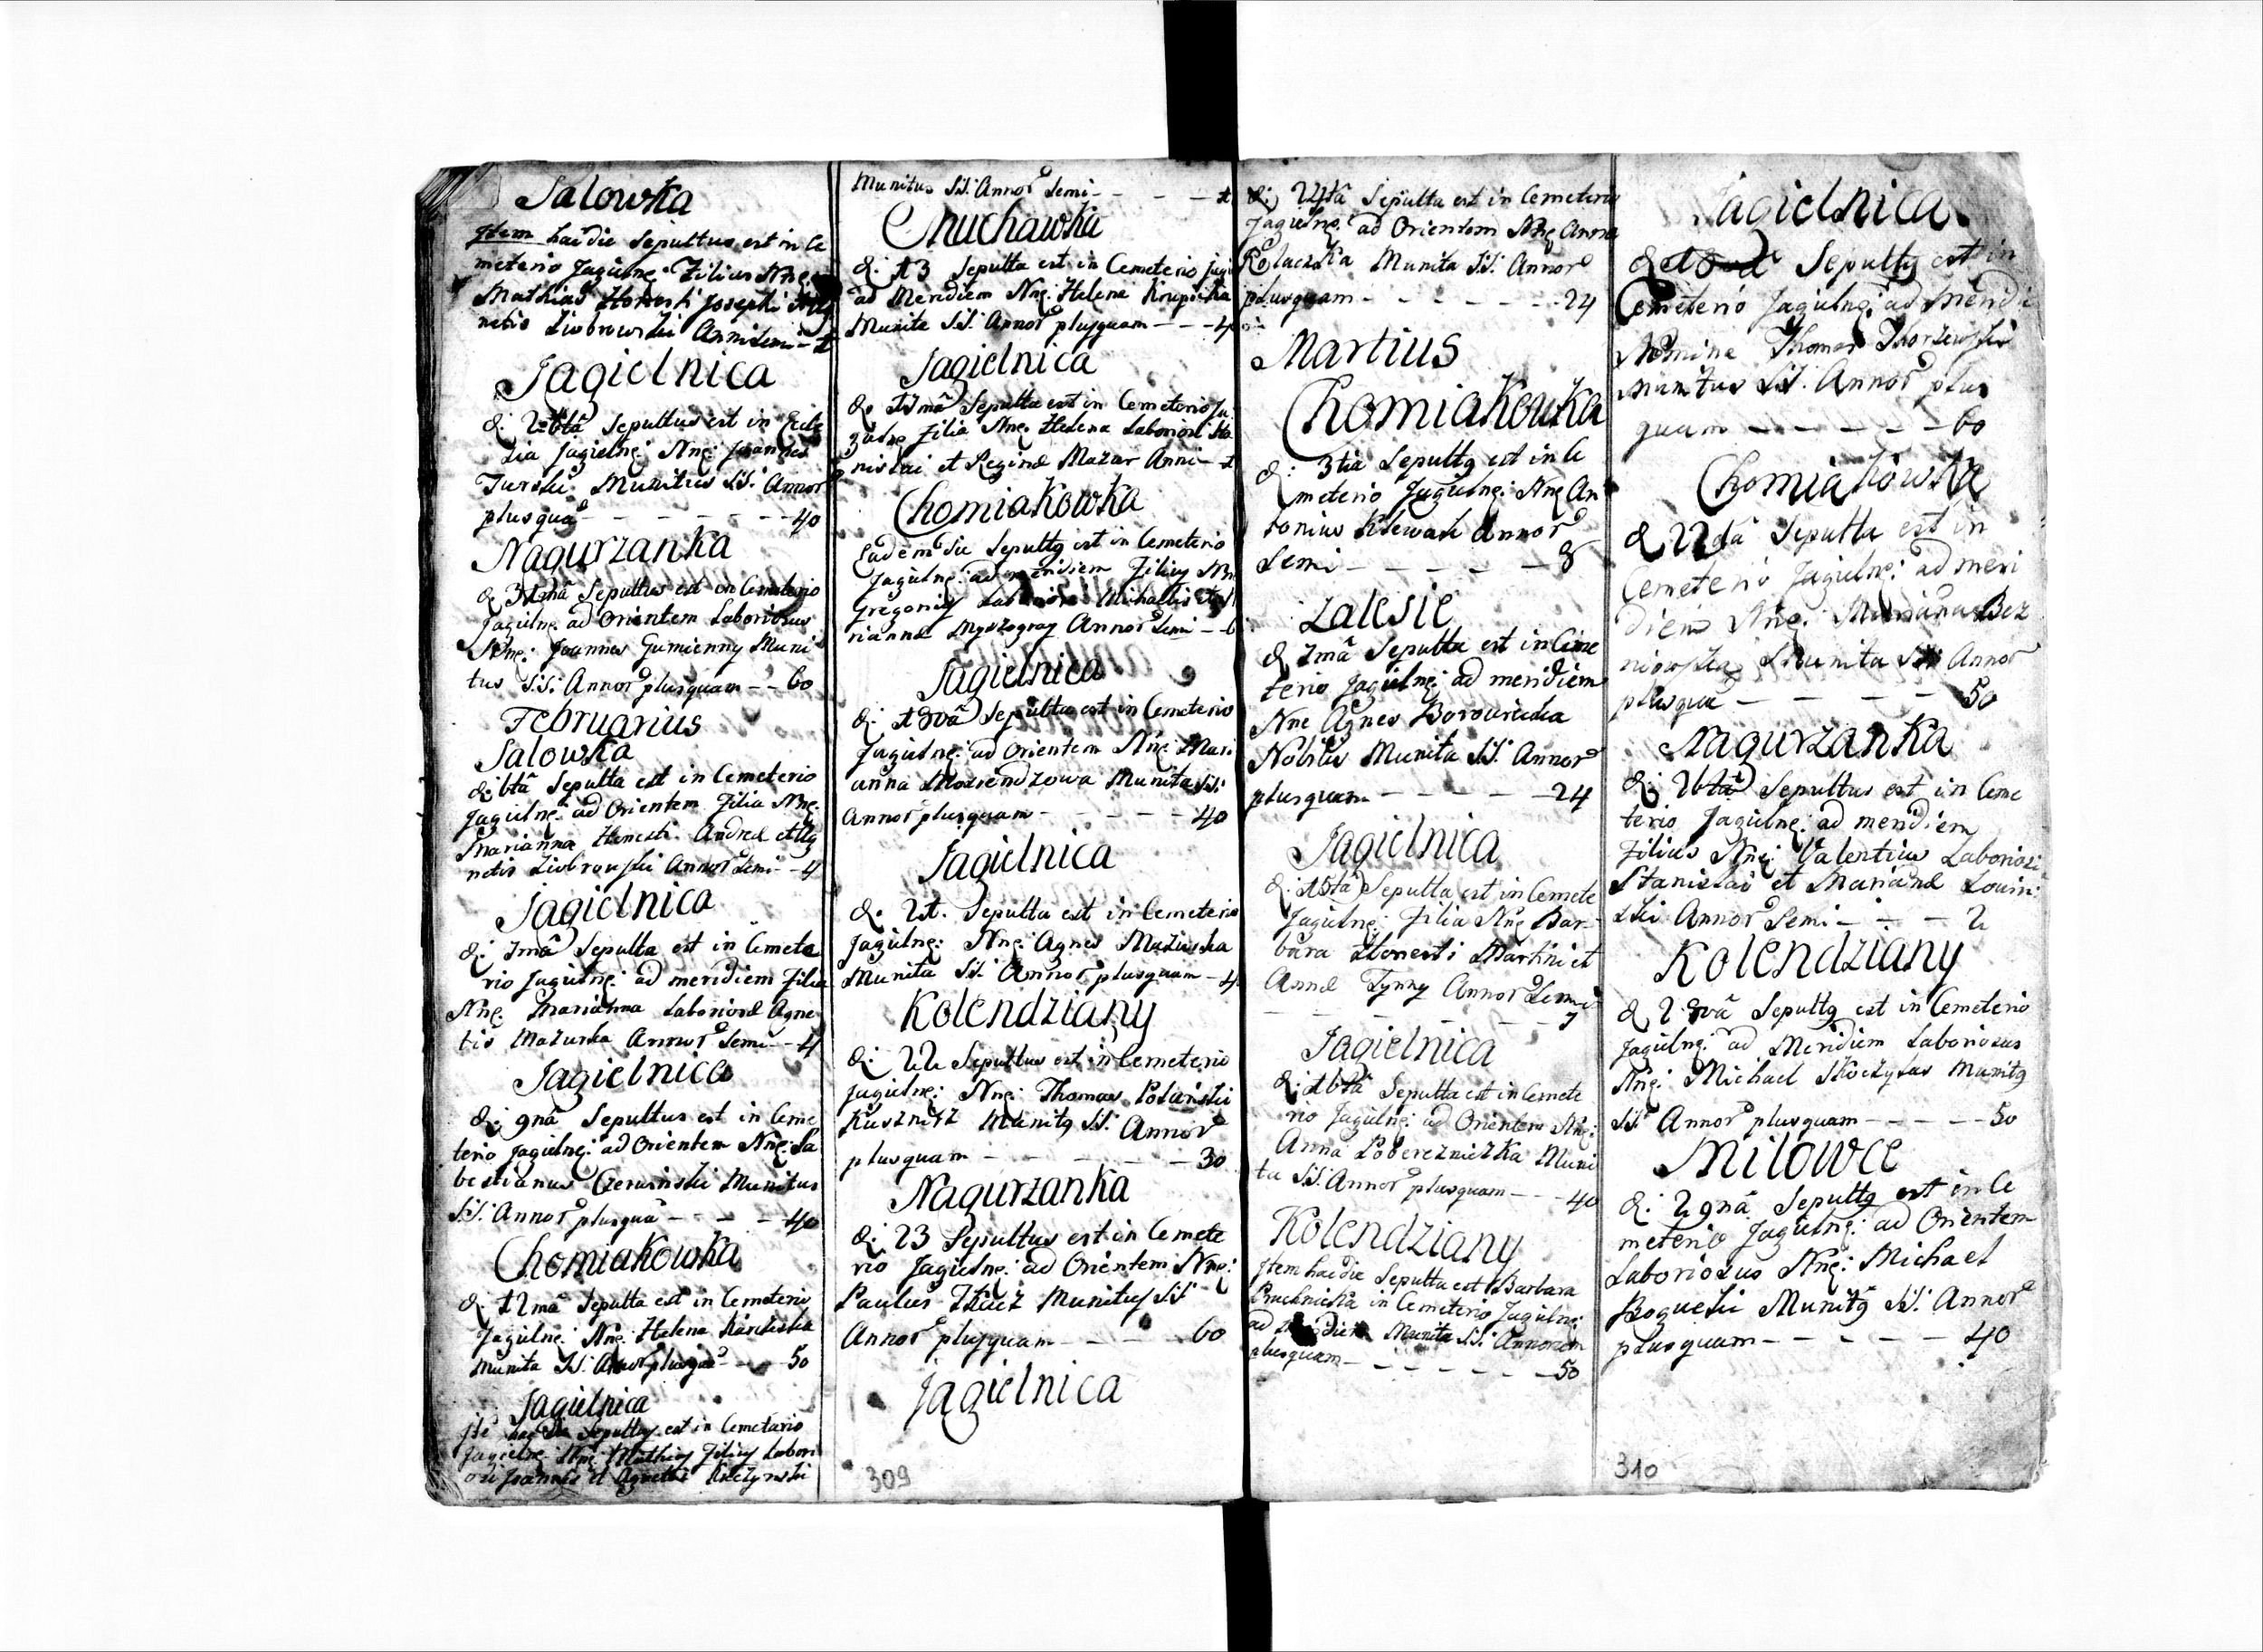 Salowka
Item hac die Sepultus est in Ce
meterio Jagielne: Filius Nne:
Mathias Honesti Josephi Ag
netis Ziobrowski Anni Semi - 1
Jagielnica
d: 26tâ Sepultus est in Eccle
zia Jagielne: Nne: Joannes
Turski Munitus SS: Annor
plus quã - - - - - - 40
Nagurzanka
d: 31mâ Sepultus est in Cemeterio
Jagielne: ad Orientem Laboriosus
Nne: Joannes Gumienny Muni
tus S:S: Annor plusquam - - 60
Februarius
Salowka
d: 6tâ Sepulta est in Cemeterio
Jagielne: ad Orientem Filia Nne:
Marianna Honesti Andreæ et Ag
netis Ziobrowski Annor Semi - 4
Jagielnica
d: 7mâ Sepulta est in Cemete
rio Jagielne: ad meridiem Filia
Nne: Marianna Laboriosæ Agne
tis Mazurka Annor Semi - 4
Jagielnica
d: 9nâ Sepultus est in Ceme
terio Jagielne: ad Orientem Nne: Sa
bestianus Czerwinski Munitus
SS: Annor plusquã - - - - 40
Chomiakowka
d: 12mâ Sepulta est in Cemeterio
Jagielne: Nne: Helena
Munita SS: Annor plusquã - - 50
Jagielnica
Jtẽ hac die Sepultus est in Cemeterio
Jagielne: Nne: Mathias Filius Labori
osi Joannis et Agnetis
Munitus SS: Annor Semi - - - - 1
Chuchawka
d: 13 Sepulta est in Cemeterio Jagi
ad Meridiem Nne: Helena Krupicka
Munita SS: Annor plusquam - - - 4
Jagielnica
d: 17mâ Sepulta est in Cemeterio Ja
Filia Nne: Helena Laboriosi Sta
nislai et Reginæ Mazur Anni - 1
Chomiakowka
Eadem die Sepultg est in Cemeterio
Jagielne: ad meridiem Filius Nne
Gregorius Laboriosi Michaelis et
rianna Annor Semi - - 6
Jagielnica
d: 18vâ Sepulta est in Cemeterio
Jagielne: ad Orientem Nne: Mari
anna Munita SS:
Annor plusquam - - - - - 40
Jagielnica
d: 21. Sepulta est in Cemeterio
Jagielne: Nne: Agnes
Munita SS: Annor plusquam - 4
Kolendziany
d: 22 Sepultus est in Cemeterio
Jagielne: Nne: Thomas Polański
Kusznirz Munitg SS: Annor
plusquam - - - - - - 30
Nagurzanka
d: 23 Sepultus est in Cemete
rio Jagielne: ad Orientem Nne:
Paulus Tkacz Munitus SS
Annor plusquam - - - - 60
Jagielnica
309
d: 24tâ Sepulta est in Cemeterio
Jagielne: ad Orientem Nne Anna
Munita SS: Annor
plusquam - - - - - - 24
Martius
Chomiakowka
d: 3tia Sepultg est in Ce
meterio Jagielne: Nne An
tonius Annor
Semi - - - - - 8
Zalesie
d: 7mâ Sepulta est in Ceme
terio Jagielne: ad meridiem
Nne Agnes
Nobilis Munita SS: Annor
plusquam - - - - - 24
Jagielnica
d: 15tâ Sepulta est in Cemete
Jagielne: Filia Nne Bar-
bara Honesti Martini et
Annæ Tynny Annor Semi
- - - - - - 7
Jagielnica
d: 16tâ Sepulta est in Cemete
rio Jagielne: ad Orientem Nne:
Anna Pobereznizka Muni
ta SS: Annor plusquam - - - 40
Kolendziany
Jtem hac die Sepulta est Barbara
Pruchnicka in Cemeterio Jagielne:
ad Munita SS: Annorum
plusquam - - - - - - 50
Jagielnica
d: Sepultg est in
Cemeterio Jagielne: ad Meridie
Nomine Thomas
Munitus SS: Annor plus
quam - - - - - - 60
Chomiakowka
d: 22dâ Sepulta est in
Cemeterio Jagielne: ad meri
diem Nne: Marianna Bez
niowska Munita SS: Annor
plusquã - - - - - 50
Nagurzanka
d: 26tâ Sepultus est in Ceme
terio Jagielne: ad meridiem
Filius Nne: Valentius Laboriosi
Stanislai et Marianæ
Annor Semi - - - - 2
Kolendziany
d: 28vâ Sepultg est in Cemeterio
Jagielne: ad Meridiem Laboriosus
Nne: Michael Skoczylas Munitg
SS: Annor plusquam - - - - - 50
Milowce
d: 29nâ Sepultg est in Ce
meterio Jagielne: ad Orientem
Laboriosus Nne: Michael
Munitg SS: Annor
plusquam - - - - - - 40
310